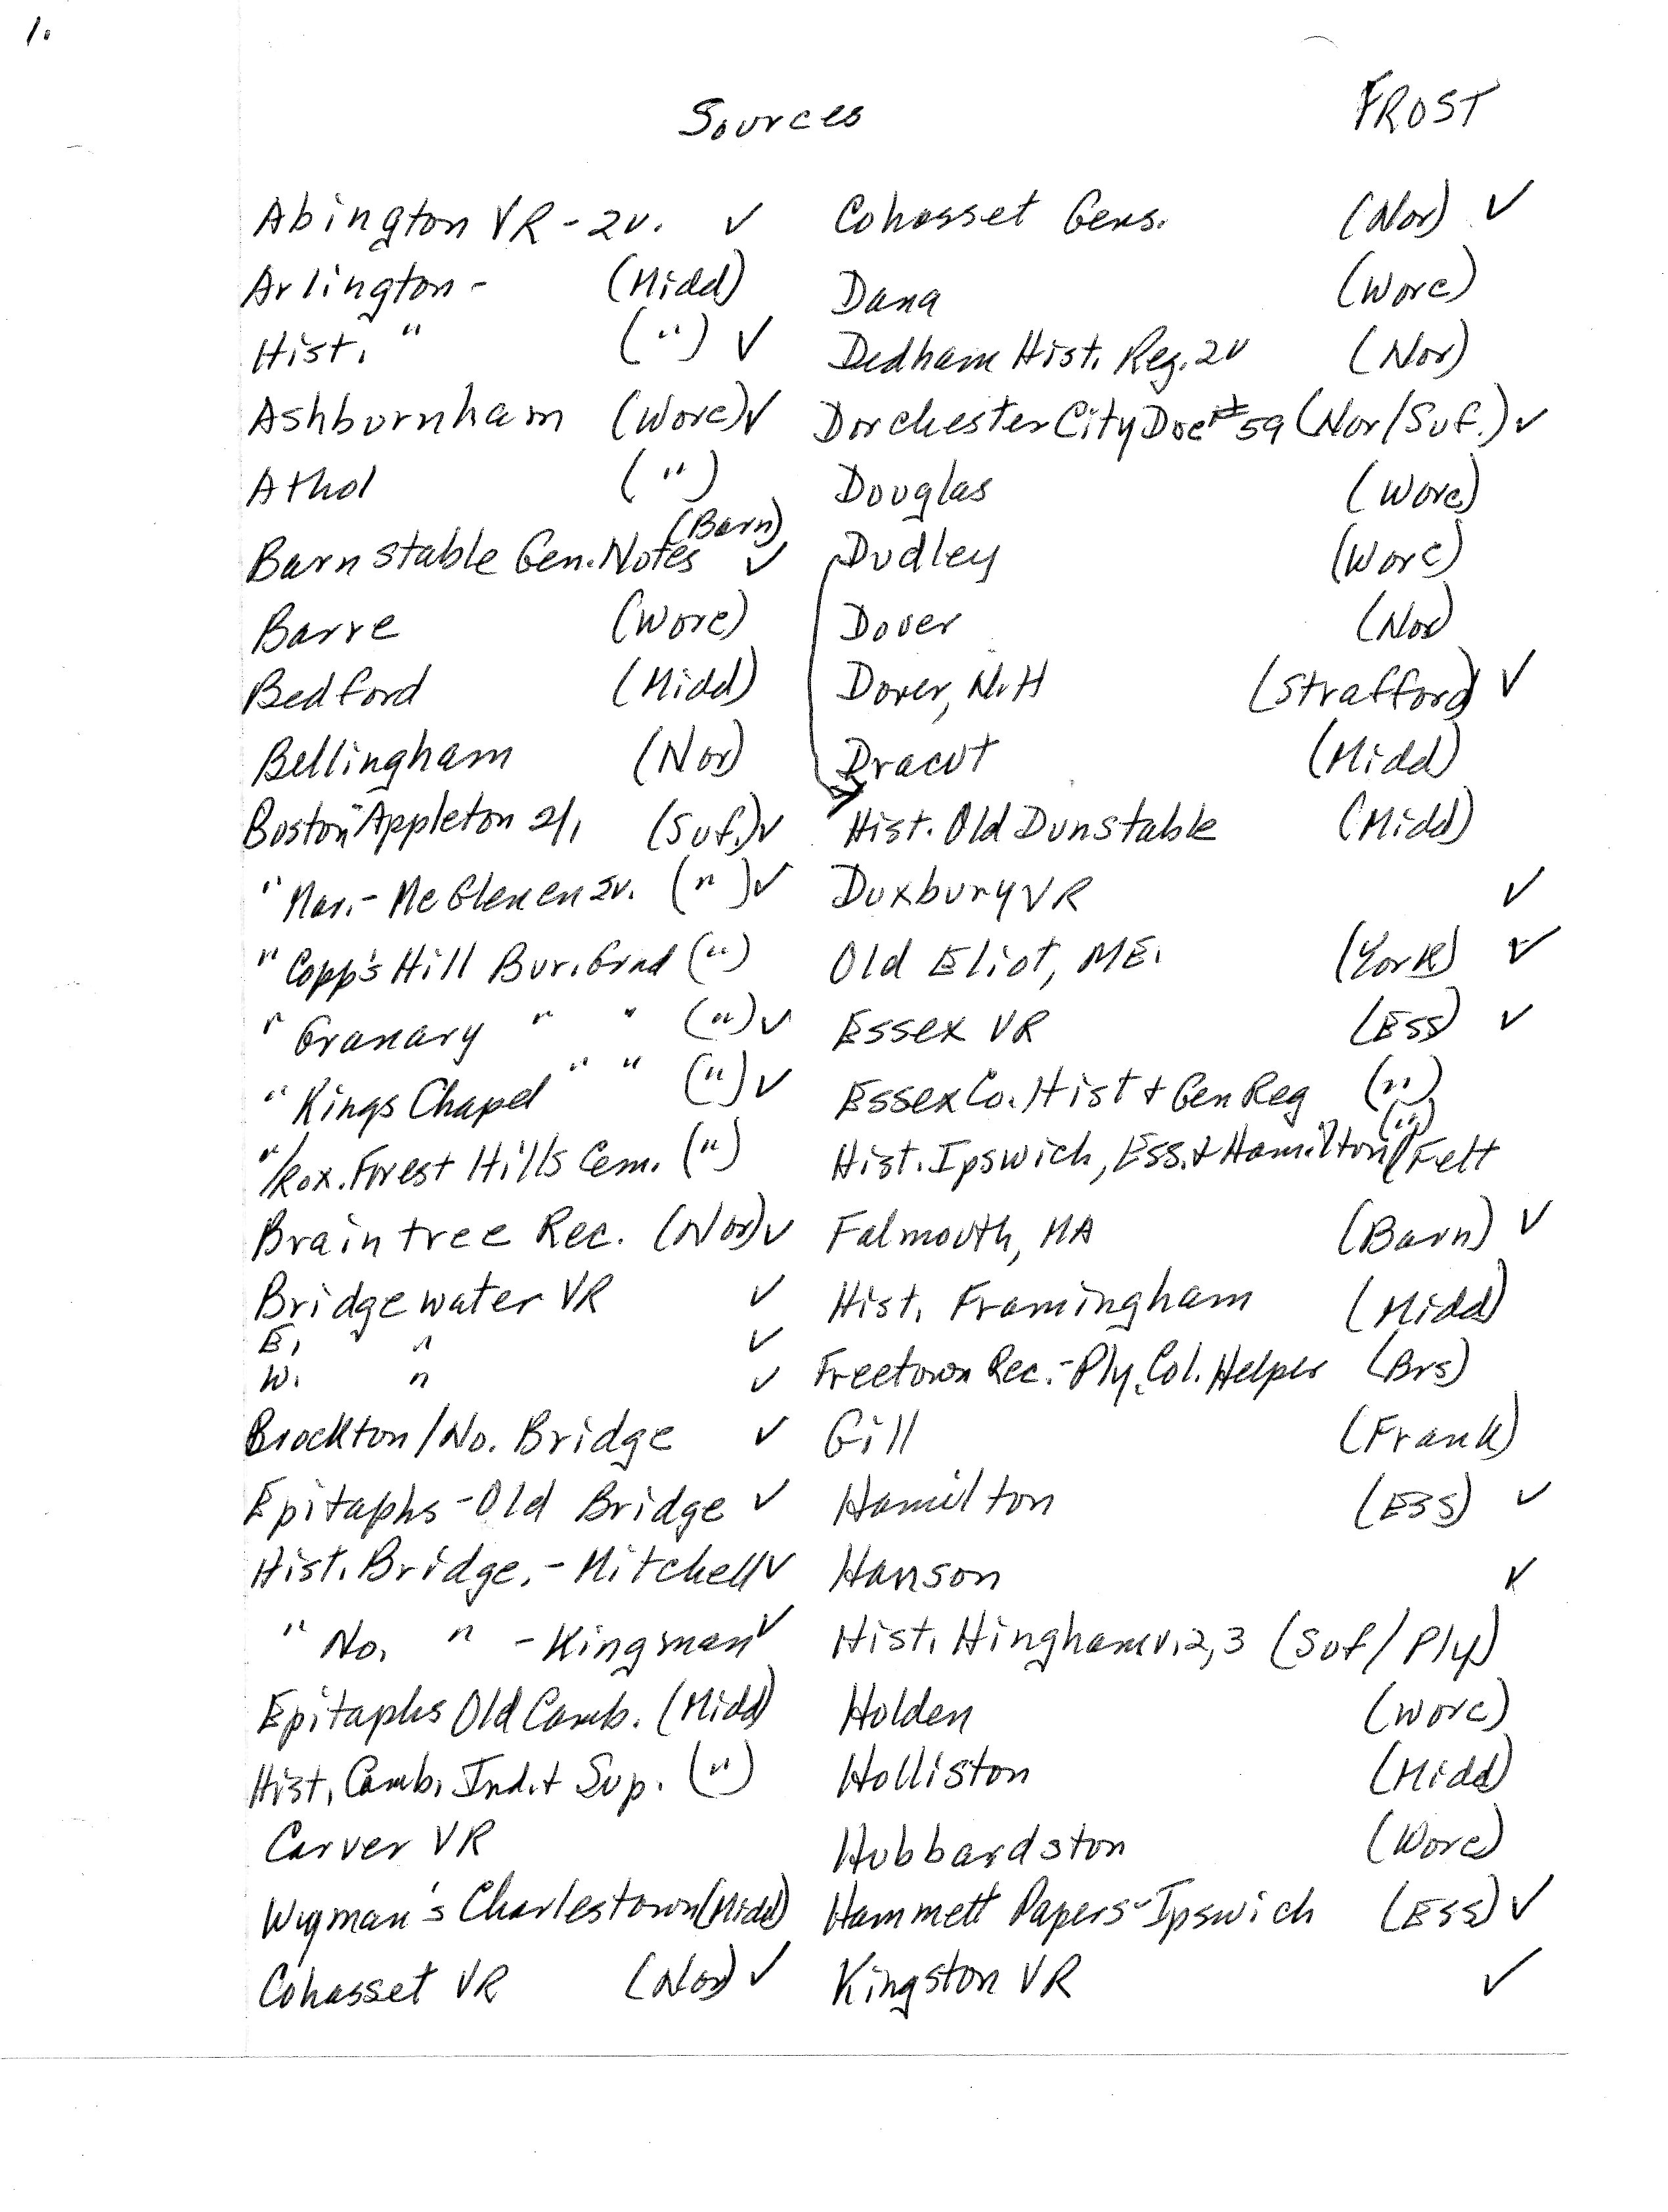 1.
Sources
FROST
Abington VR - 2v. ✓
Arlington - (Midd)
Hist. " (") ✓
Ashburnham (Worc) ✓
Athol (")
Barnstable Gen. Notes (Barn) ✓
Barre (Worc)
Bedford (Midd)
Bellingham (Nor)
Boston "Appleton 2/1 (Suf.) ✓
" Mar. - McGlenen 2v. (") ✓
" Copp's Hill Bur. Grnd (")
" Granary " " (") ✓
" Kings Chapel " " (") ✓
"/Rox. Forest Hills Cem. (")
Braintree Rec. (Nor) ✓
Bridgewater VR ✓
E. " ✓
W. " ✓
Brockton/No. Bridge ✓
Epitaphs - Old Bridge ✓
Hist. Bridge. - Mitchell ✓
" No. " - Kingman ✓
Epitaphs Old Camb. (Midd)
Hist. Camb. Ind. + Sup. (")
Carver VR
Wyman's Charlestown (Midd)
Cohasset VR (Nor) ✓
Cohasset Gens. (Nor) ✓
Dana (Worc)
Dedham Hist. Reg. 2v (Nor)
Dorchester City Doc # 59 (Nor/Suf.) ✓
Douglas (Worc)
Dudley (Worc)
Dover (Nor)
Dover, N.H (Strafford) ✓
Dracut (Midd)
Hist. Old Dunstable (Midd)
Duxbury VR ✓
Old Eliot, ME. (York) ✓
Essex VR (Ess) ✓
Essex Co. Hist + Gen Reg (")
Hist. Ipswich, Ess. + Hamilton (") Felt
Falmouth, MA (Barn) ✓
Hist. Framingham (Midd)
Freetown Rec. - Ply. Col. Helper (Brs)
Gill (Frank)
Hamilton (Ess) ✓
Hanson ✓
Hist. Hingham v. 2, 3 (Suf/Ply)
Holden (Worc)
Holliston (Midd)
Hubbardston (Worc)
Hammett Papers - Ipswich (Ess) ✓
Kingston VR ✓